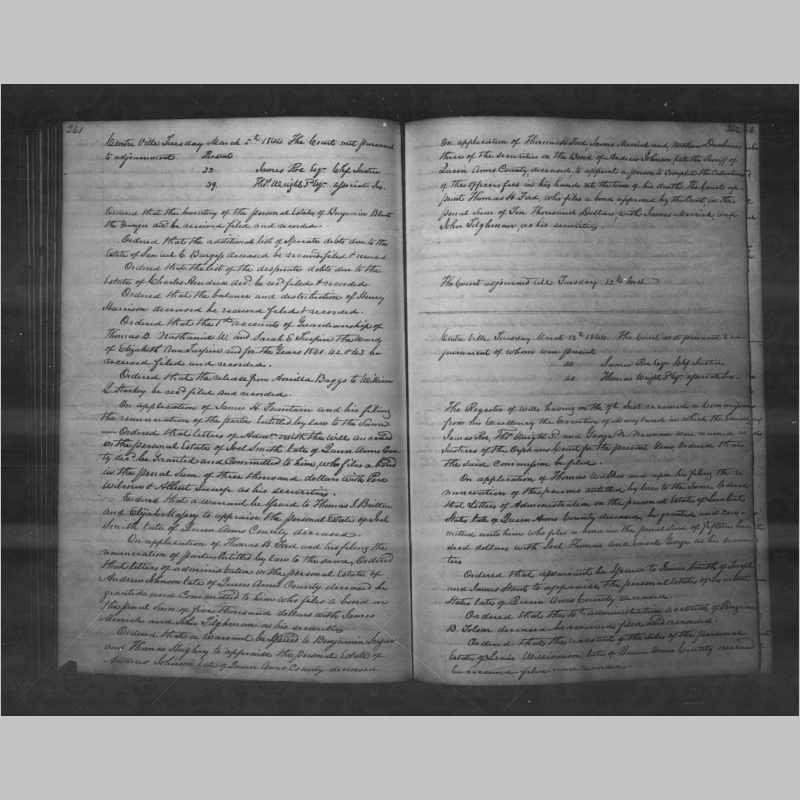 261
Centre Ville Tuesday March 5th 1844 The Court met pursuant
to adjournment Present
22 James Roe Esqr Chf Justice
29. Thos. Wright 3d Esqr associate Jus.
Ordered that the Inventory of the personal Estate of Benjamin
the be received filed and recorded.
Ordered that the additional list of Sperate debts due to the
Estate of Samuel E deceased be received filed &
Ordered that the list of the desperate debts due to the
Estate of Charles Hendrix decd. be recd filed & recorded
Ordered that the balance and distribution of Henry
Harrison deceased be received filed & recorded.
Ordered that the 1st accounts of Guardianship of
Thomas B. Nathaniel W and Sarah E Turpin the wards
of Elizabeth Ann Turpin and for the Years 1841. 42 & 43 be
received filed and recorded.
Ordered that the release from Amilla Baggs to William
be recd filed and recorded.
On application of James H. Fountain and his filing
the renunciation of the parties entitled by law to the same
Ordered that letters of Admn. with the will annexed
on the personal Estate of Joel Smith late of Queen Anns Coun
ty decd. be Granted and Committed to him, who files a bond
in the penal Sum of three thousand dollars with Pere
Wilmer & Albert as his securities.
Ordered that a warrant be Issued to Thomas J. Bratten
and Elijah to appraise the personal Estate of Joel
Smith late of Queen Anns County deceased.
On application of Thomas H. Ford and his filing the
renunciation of parties entitled by law to the same, Ordered
that letters of administration on the personal Estate of
Andrew Johnson late of Queen Anns County deceased be
granted and Committed to him who files a bond in
the penal Sum of five thousand dollars with James
Merrick and John Tilghman as his securities
Ordered that a warrant be Issued to Benjamin
and Thomas Hughey to appraise the personal Estate of
Andrew Johnson late of Queen Anns County deceased
262
On application of Thomas H. Ford, James Merrick and
three of the securities on the Bond of Andrew Johnson late the Sheriff of
Queen Anns County, deceased, to appoint a person to Complete the Collection
of the Officers fees in his hands at the time of his death. The Court ap-
point Thomas H. Ford, who files a bond approved by the Court in the
penal sum of Ten Thousand Dollars, with James Merrick, and
John Tilghman, as his securities.
The Court adjourned till Tuesday 12th Inst.
Centre Ville Tuesday March 12th 1844. The Court met pursuant to ad
journment of whom were present
James Roe Esqr Chf Justice
Thomas Wright 3d Esqr associate Jus.
The Register of wills having on the 9th Inst. received a Commission
from his Excellency the Executive of Maryland in which the names of
James Roe, Thos. Wright 3d. and George N. Newnam were named
Justices of the Orphans Court for the present Year Ordered that
the said commission be filed.
On application of Thomas and upon his filing the re
nunciation of the persons entitled by law to the same Ordered
that letters of Administration on the personal Estate of
late of Queen Anns County deceased, be granted and com-
mitted unto him who files a bond in the penal sum of fifteen hun
dred dollars with Joel Thomas and George as his securi-
ties
Ordered that a warrant be Issued to James Smith of Joseph
and James to appraise the personal estate of
late of Queen Anns County deceased.
Ordered that the 1st administration account of Benjamin
B. deceased be received filed and recorded.
Ordered that the account of the Sales of the personal
Estate of Williamson late of Queen Anns County deceased
be received filed and recorded.